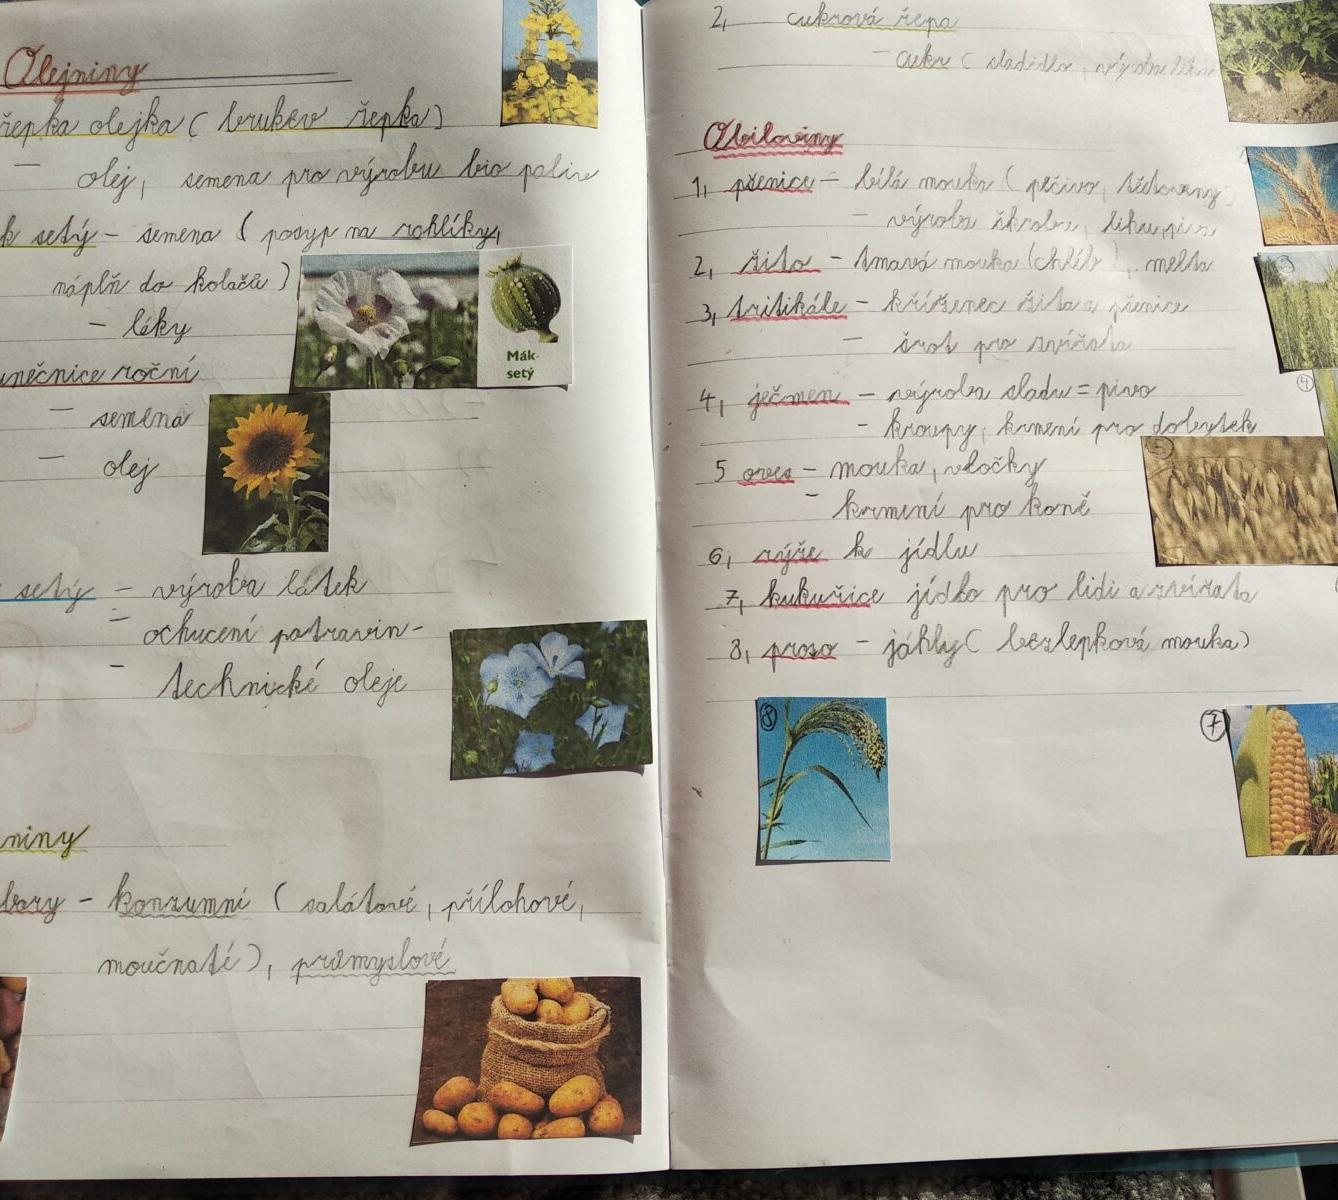 Olejniny
řepka olejka ( brukev řepka)
— olej, semena pro výrobu bio paliv
k setý – semena ( posyp na rohlíky,
náplň do koláčů )
– léky
Mák-
setý
unečnice roční
— semena
— olej
setý – výroba látek
– ochucení potravin-
– technické oleje
niny
bory – konzumní ( salátové, přílohové,
moučnaté), průmyslové
2, cukrová řepa
– cukr ( sladidlo, výroba
Obiloviny
1, pšenice – bílá mouka ( pečivo, těstoviny)
– výroba škrobu, lihu, piva
2, žito – tmavá mouka (chléb), melta
3, tritikále – kříženec žita a pšenice
– šrot pro zvířata
4, ječmen – výroba sladu = pivo
– kroupy, krmení pro dobytek
5 oves – mouka, vločky
– krmení pro koně
6, rýže k jídlu
7, kukuřice jídlo pro lidi a zvířata
8, proso – jáhly ( bezlepková mouka)
3
4
5
8
7